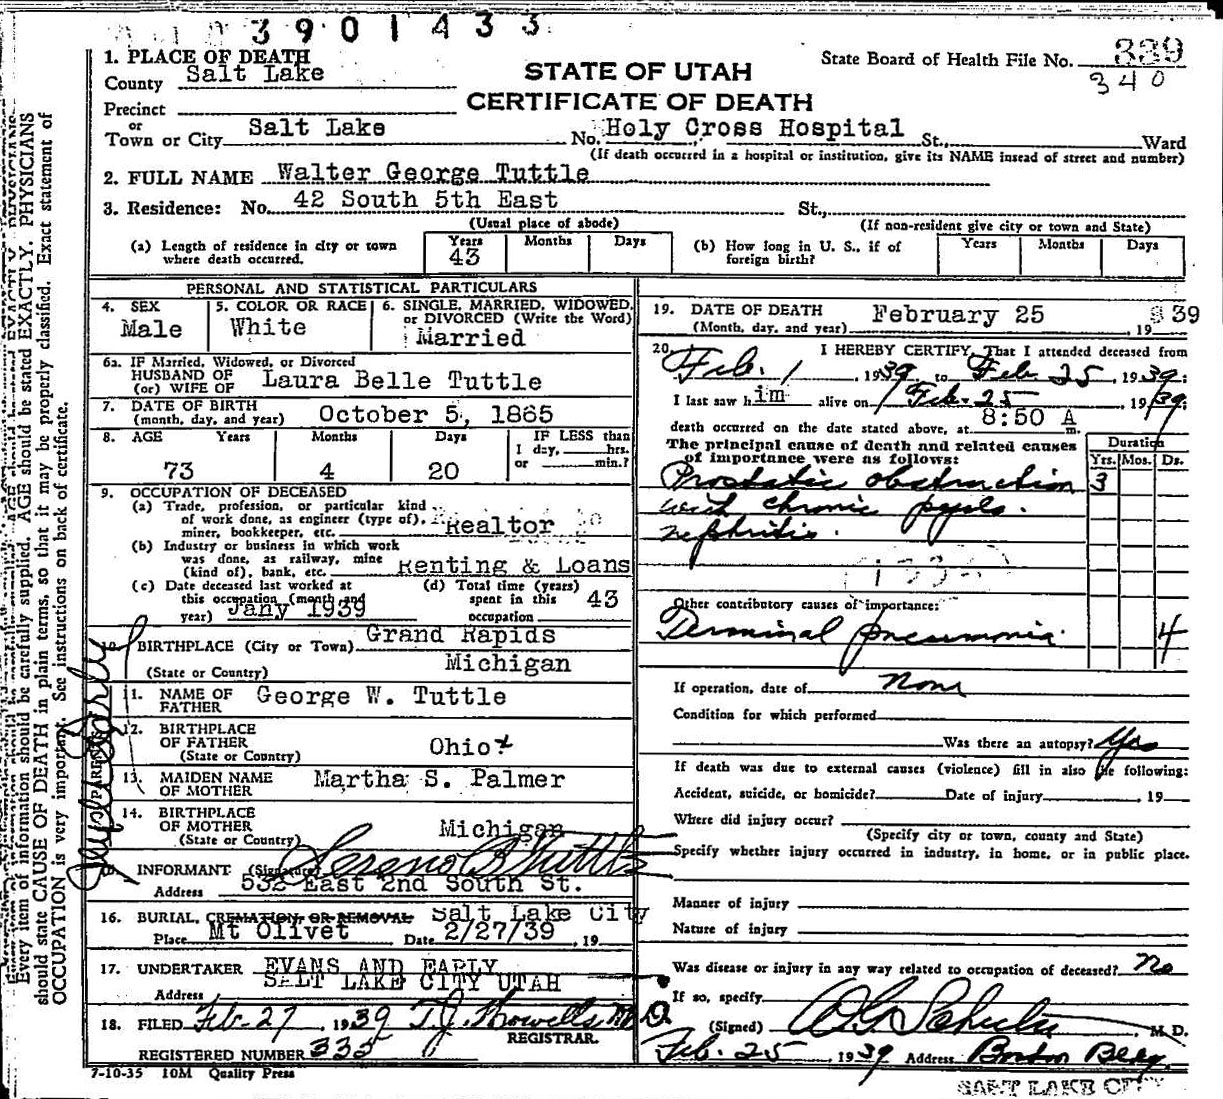 3901433
State Board of Health File No. 339
340
STATE OF UTAH
CERTIFICATE OF DEATH
1. PLACE OF DEATH
County Salt Lake
Precinct
or
Town or City Salt Lake No. Holy Cross Hospital St., Ward
(If death occurred in a hospital or institution, give its NAME insead of street and number)
2. FULL NAME Walter George Tuttle
3. Residence: No. 42 South 5th East St.,
(Usual place of abode) (If non-resident give city or town and State)
(a) Length of residence in city or town where death occurred. Years 43 Months Days
(b) How long in U. S., if of foreign birth? Years Months Days
PERSONAL AND STATISTICAL PARTICULARS
4. SEX Male
5. COLOR OR RACE White
6. SINGLE, MARRIED, WIDOWED, or DIVORCED (Write the Word) Married
6a. IF Married, Widowed, or Divorced
HUSBAND OF
(or) WIFE OF Laura Belle Tuttle
7. DATE OF BIRTH
(month, day, and year) October 5, 1865
8. AGE Years Months Days IF LESS than
1 day, hrs.
or min.?
73 4 20
9. OCCUPATION OF DECEASED
(a) Trade, profession, or particular kind
of work done, as engineer (type of),
miner, bookkeeper, etc. Realtor
(b) Industry or business in which work
was done, as railway, mine
(kind of), bank, etc. Renting & Loans
(c) Date deceased last worked at
this occupation (month and
year) Jany 1939
(d) Total time (years)
spent in this
occupation 43
10. BIRTHPLACE (City or Town) Grand Rapids
(State or Country) Michigan
11. NAME OF
FATHER George W. Tuttle
12. BIRTHPLACE
OF FATHER
(State or Country) Ohio
13. MAIDEN NAME
OF MOTHER Martha S. Palmer
14. BIRTHPLACE
OF MOTHER
(State or Country) Michigan
INFORMANT (Signature) Sereno B Tuttle
Address 532 East 2nd South St.
16. BURIAL, CREMATION, OR REMOVAL Salt Lake City
Place Mt Olivet Date 2/27/39, 19
17. UNDERTAKER EVANS AND EARLY
Address SALT LAKE CITY UTAH
18. FILED Feb. 27, 1939 T.J. Howells M.D.
REGISTRAR.
REGISTERED NUMBER 335
7-10-35 10M Quality Press
19. DATE OF DEATH
(Month, day, and year) February 25, 1939
20. I HEREBY CERTIFY, That I attended deceased from
Feb. 1, 1939, to Feb 25, 1939;
I last saw him alive on Feb. 25 1939
death occurred on the date stated above, at 8:50 A m.
The principal cause of death and related causes
of importance were as follows:
Duration
Yrs. Mos. Ds.
Prostatic obstruction 3
with chronic pyelo.
nephritis.
Other contributory causes of importance:
Terminal pneumonia. 4
If operation, date of None
Condition for which performed
Was there an autopsy? Yes
If death was due to external causes (violence) fill in also the following:
Accident, suicide, or homicide? Date of injury, 19
Where did injury occur?
(Specify city or town, county and State)
Specify whether injury occurred in industry, in home, or in public place.
Manner of injury
Nature of injury
Was disease or injury in any way related to occupation of deceased? No
If so, specify
(Signed) M. D.
Feb. 25, 1939 Address Boston Bldg.
SALT LAKE CITY
Every item of information should be carefully supplied. AGE should be stated EXACTLY. PHYSICIANS
should state CAUSE OF DEATH in plain terms, so that it may be properly classified. Exact statement of
OCCUPATION is very important. See instructions on back of certificate.